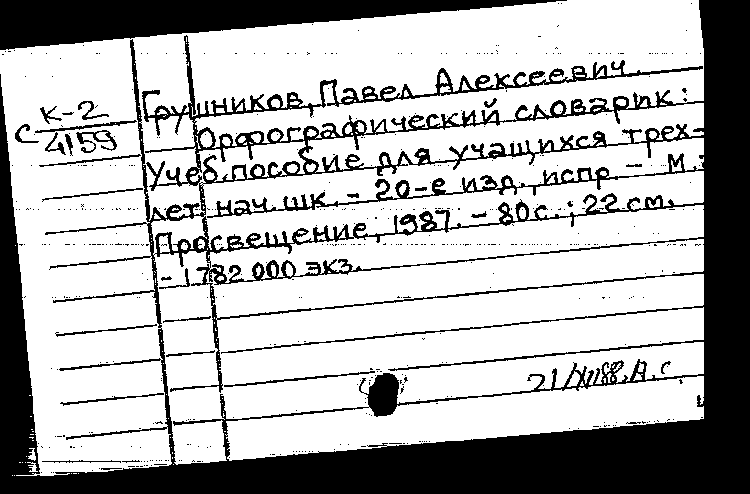 К-2
С 4159
Грушников, Павел Алексеевич.
Орфографический словарик:
Учеб. пособие для учащихся трех-
лет. нач. шк. - 20-е изд., испр. - М.:
Просвещение, 1987. - 80 с.; 22 см.
- 1782 000 экз.
21/XII88. А. С.